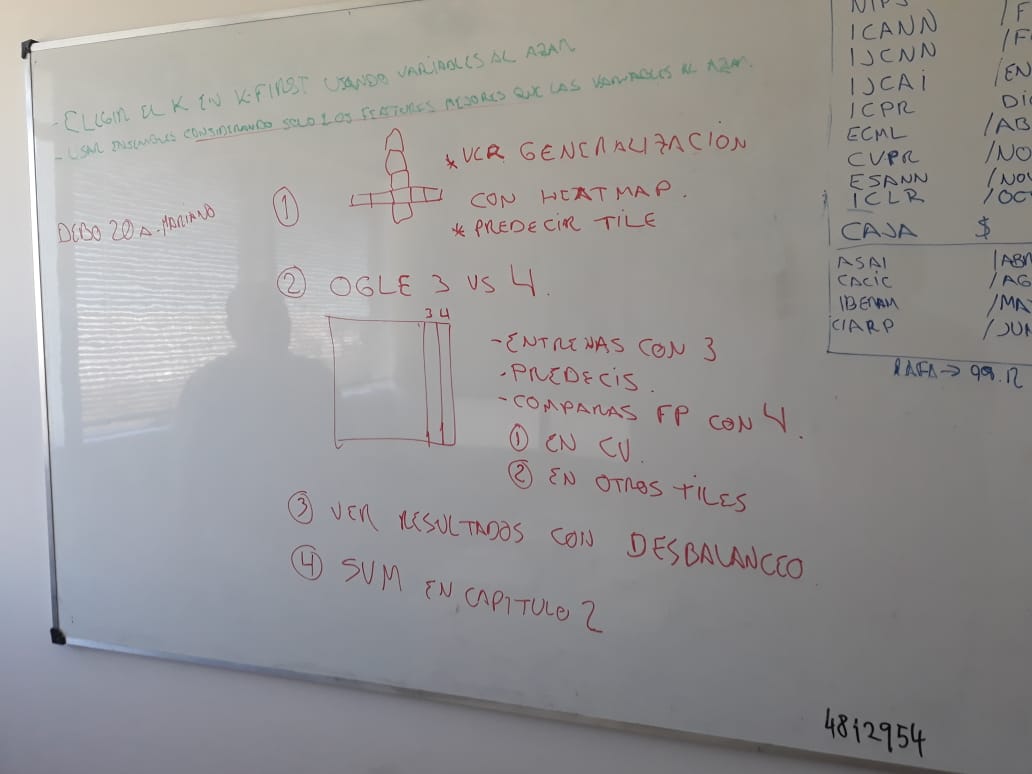 - ELEGIR EL K EN K-FIRST USANDO VARIABLES AL AZAR
- USAR ENSEMBLES CONSIDERANDO SOLO LOS FEATURES MEJORES QUE LAS VARIABLES AL AZAR.
DEBO 20 A MARIANO
①
* VER GENERALIZACIÓN
CON HEATMAP.
* PREDECIR TILE
② OGLE 3 VS 4.
3 4
- ENTRENAS CON 3
- PREDECIS.
- COMPARAS FP CON 4.
① EN CV.
② EN OTROS TILES
③ VER RESULTADOS CON DESBALANCEO
④ SVM EN CAPITULO 2
NIPS
ICANN /F
IJCNN /F
IJCAI /EN
ICPR DIC
ECML /AB
CVPR /NO
ESANN /NOV
ICLR /OCT
CAJA $
ASAI /ABR
CACIC /AG
IBERAM /MA
CIARP /JUN
RAFA → 99.12
4812954